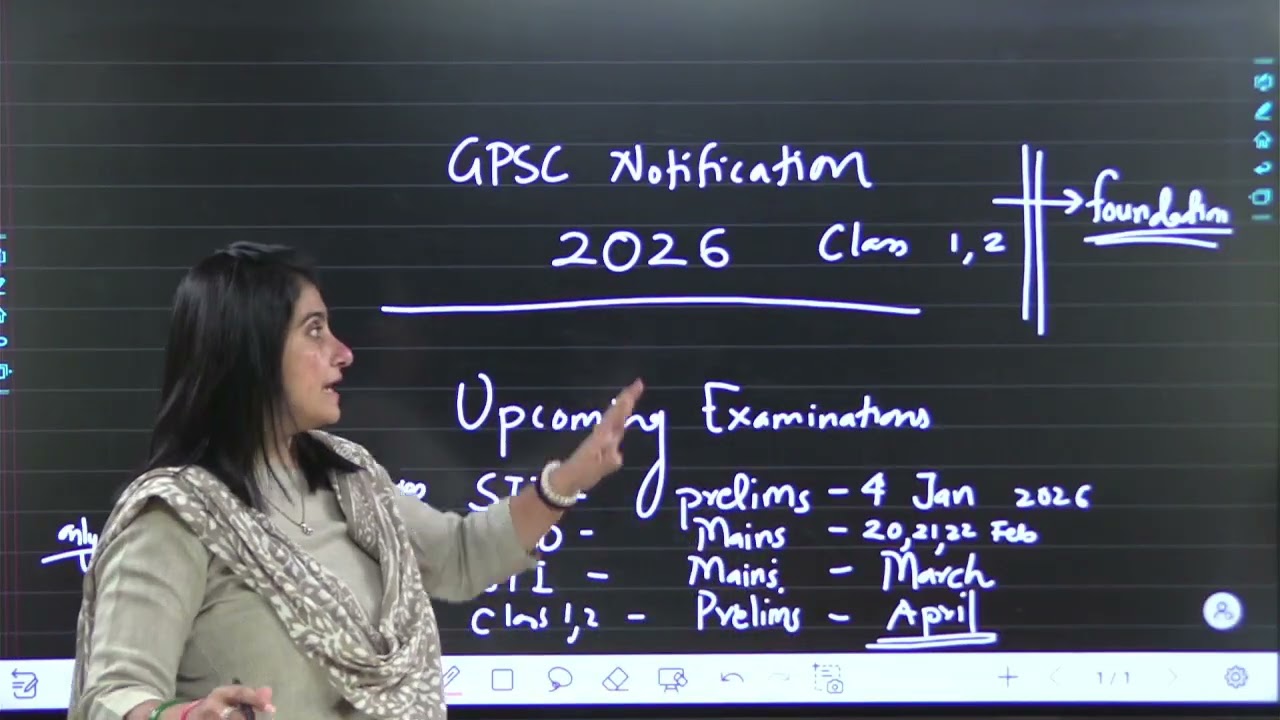 GPSC Notification
2026 Class 1,2
foundation
Upcoming Examinations
STI - prelims - 4 Jan 2026
- Mains - 20,21,22 Feb
STI - Mains - March
Class 1,2 - Prelims - April
only
1/1